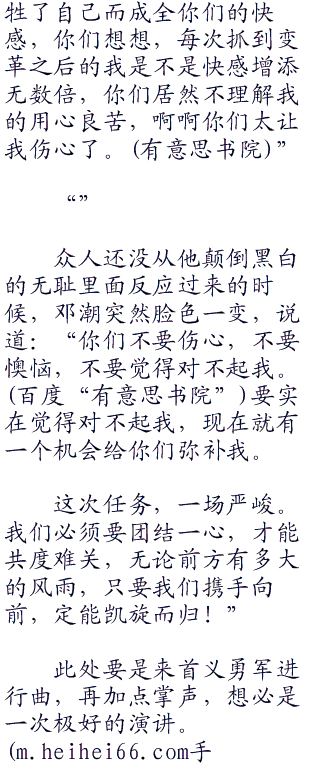 牲了自己而成全你们的快
感，你们想想，每次抓到变
革之后的我是不是快感增添
无数倍，你们居然不理解我
的用心良苦，啊啊你们太让
我伤心了。(有意思书院)”
“”
众人还没从他颠倒黑白
的无耻里面反应过来的时
候，邓潮突然脸色一变，说
道：“你们不要伤心，不要
懊恼，不要觉得对不起我。
(百度“有意思书院”)要实
在觉得对不起我，现在就有
一个机会给你们弥补我。
这次任务，一场严峻。
我们必须要团结一心，才能
共度难关，无论前方有多大
的风雨，只要我们携手向
前，定能凯旋而归！”
此处要是来首义勇军进
行曲，再加点掌声，想必是
一次极好的演讲。
(m.heihei66.com手